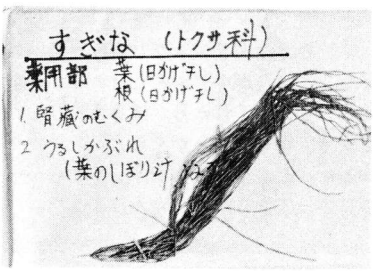 すぎな (トクサ科)
薬用部 葉(日かげ干し)
根(日かげ干し)
1. 腎藏のむくみ
2 うるしかぶれ
(葉のしぼり汁